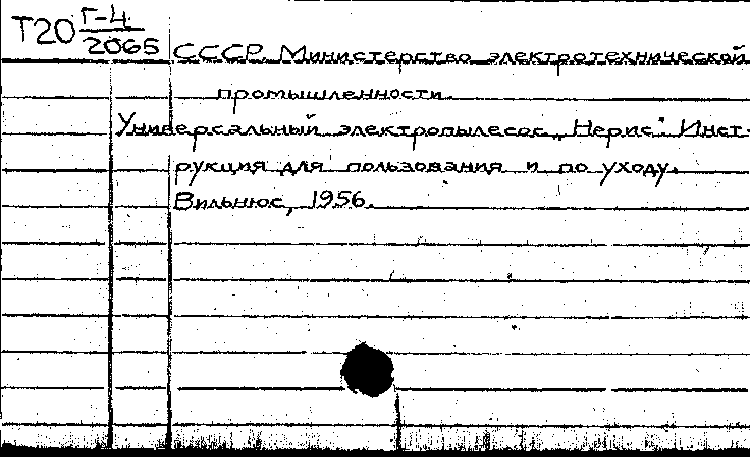 Т20 Г-4
2065
СССР. Министерство электротехнической
промышленности.
Универсальный электропылесос „Нерис". Инст-
рукция для пользования и по уходу.
Вильнюс, 1956.